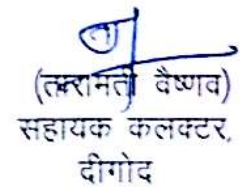 वैष्णव)
सहायक कलक्टर,
दीगोद